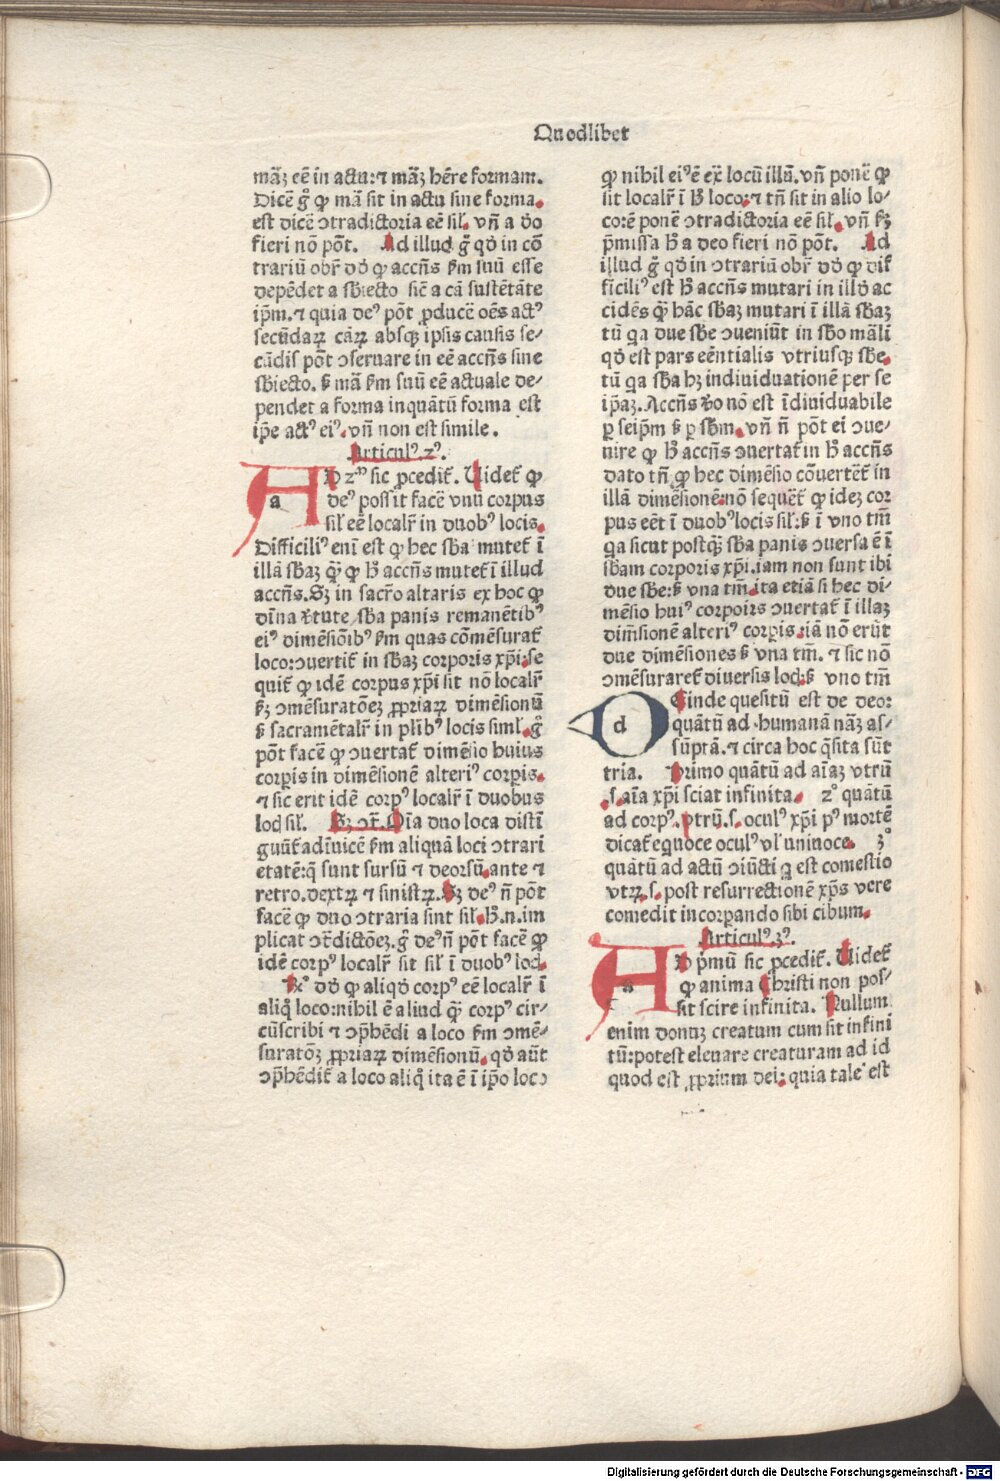 Quodlibet
mãʒ eē in actu: ⁊ mãʒ hēre formam.
Dicē g̊ ꝙ mã sit in actu sine forma.
est dicē ↄtradictoria eē sil̕. vñ a do
fieri nō põt. Ad illud g̊ qd̕ in cō
trariū obr̄ dd̕ ꝙ accñs ẜm suū esse
depēdet a sb̄iecto sic̄ a cã sustētāte
ip̄m. ⁊ quia deꝰ põt ꝓducē oēs actꝰ
secūdaꝝ cãꝝ absqꝫ ipsis causis se-
cūdis põt ↄseruare in eē accñs sine
sb̄iecto. ẞ mã ẜm suū eē actuale de-
pendet a forma inquātū forma est
ip̄e actꝰ eiꝰ. vñ non est simile.
Articulꝰ .2ꝰ.
AD 2ᵐ sic ꝓcedit̄. Uidet̄ ꝙ
deꝰ possit facē vnū corpus
sil̕ eē localr̄ in duobꝰ locis.
Difficiliꝰ eni est ꝙ hec sb̄a mutet̄ ĩ
illā sb̄aʒ q̄ꝫ ꝙ h̄ accñs mutet̄ ĩ illud
accñs. Sʒ in sacr̄o altaris ex hoc ꝙ
dīna v̄tute sb̄a panis remanētibꝰ
eiꝰ dimēsiōibꝰ ẜm quas cōmēsurat̄
loco: ↄuertit̄ in sb̄aʒ corporis xp̄i. se
quit̄ ꝙ idē corpus xp̄i sit nō localr̄
ẜʒ ↄmēsuratōeʒ ꝓpriaꝝ dimēsionū
ẞ sacramētalr̄ in plībꝰ locis siml̕. g̊
põt facē ꝙ ↄuertat̄ dimēsio huius
corꝑis in dimēsionē alteriꝰ corꝑis.
⁊ sic erit idē corpꝰ localr̄ ĩ duobus
locis sil̕. Sʒ ↄt̄. Oīa duo loca distī
guūt̄ adīuicē ẜm aliquā loci ↄtrari
etatē: q̄ sunt sursū ⁊ deorsū. ante ⁊
retro. dextꝝ ⁊ sinistꝝ. Sʒ deꝰ ñ põt
facē ꝙ duo ↄtraria sint sil̕. h̄. n. im
plicat ↄt̄dictōeʒ. g̊ deꝰ ñ põt facē ꝙ
idē corpꝰ localr̄ sit sil̕ ĩ duobꝰ locis.
Rꝰ dd̕ ꝙ aliqd̕ corpꝰ eē localr̄ ĩ
aliq̊ loco: nihil ē aliud q̄ꝫ corpꝰ cir-
cūscribi ⁊ ↄp̄hēdi a loco ẜm ↄmē-
suratōʒ ꝓpriaꝝ dimēsionū. qd̕ aūt
ↄp̄hēdit̄ a loco aliq̊ ita ē ĩ ip̄o loco
ꝙ nihil eiꝰ ē ex̄ locū illū. vñ ponē ꝙ
sit localr̄ ĩ h̄ loco: ⁊ tñ sit in alio lo-
co: ē ponē ↄtradictoria eē sil̕. vñ ẜʒ
p̄missa h̄ a deo fieri nō põt. Ad
illud g̊ qd̕ in ↄtrariū obr̄ dd̕ ꝙ dif
ficiliꝰ est h̄ accñs mutari in illd̕ ac
cidēs q̄ꝫ hāc sb̄aʒ mutari ĩ illā sb̄aʒ
tū qa due sb̄e ↄueniūt in sb̄o māli
qd̕ est pars eēntialis vtriusqꝫ sb̄e.
tū qa sb̄a hʒ indiuiduationē per se
ip̄aʒ. Accñs v̄o nō est īdiuiduabile
ꝑ seip̄m ẞ ꝑ sb̄m. vñ ñ põt ei ↄue-
nire ꝙ h̄ accñs ↄuertat̄ in h̄ accñs
dato tñ ꝙ hec dimēsio cōuertēt̄ in
illā dimēsionē: nō sequēt̄ ꝙ ideʒ cor
pus eēt ĩ duobꝰ locis sil̕: ẞ ĩ vno tm̄
qa sicut postq̄ꝫ sb̄a panis ↄuersa ē ĩ
sb̄am corporis xp̄i. iam non sunt ibi
due sb̄e: ẞ vna tm̄. ita etiā si hec di-
mēsio huiꝰ corpoirs ↄuertat̄ ĩ illaʒ
dim̄sionē alteriꝰ corꝑis. iā nō erūt
due dimēsiones ẞ vna tm̄. ⁊ sic nō
ↄmēsuraret̄ diuersis locis. ẞ vno tm̄
DEinde quesitū est de deo:
quātū ad humanā nãʒ as-
sūptā. ⁊ circa hoc q̄sita sūt
tria. Primo quātū ad aīaʒ vtrū
.s. aīa xp̄i sciat infinita. 2ꝰ quātū
ad corpꝰ. vtrū .s. oculꝰ xp̄i pꝰ mortē
dicat̄ eq̊uoce oculꝰ vl̕ uniuoce. 3ꝰ
quātū ad actū ↄiūcti q̄ est comestio
vtꝝ .s. post resurrectionē xp̄s vere
comedit incorꝑando sibi cibum.
Articulꝰ .3ꝰ.
AD p̄mū sic ꝓcedit̄. Uidet̄
ꝙ anima Christi non pos-
sit scire infinita. Nullum
enim donuʒ creatum cum sit infini
tū: potest eleuare creaturam ad id
quod est ꝓprium dei: quia tale est
Digitalisierung gefördert durch die Deutsche Forschungsgemeinschaft - DFG